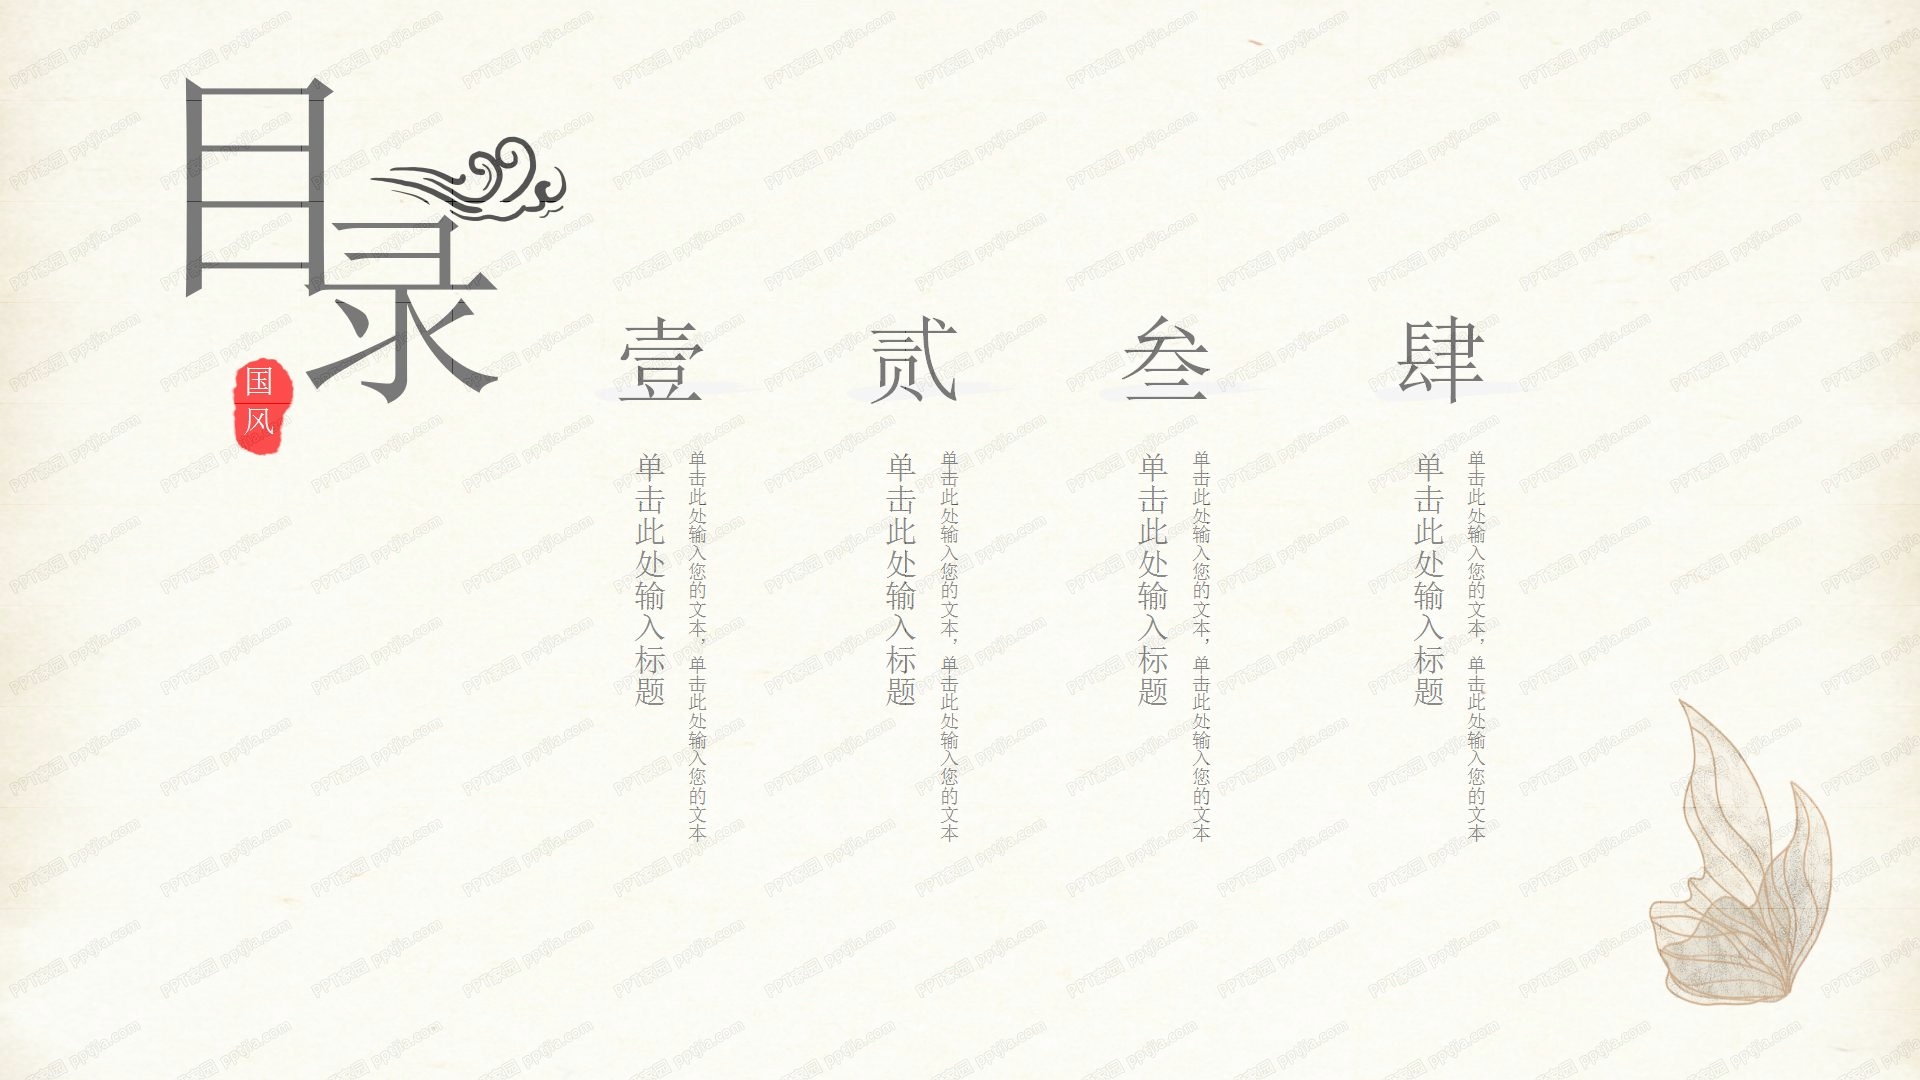 目录
国风
壹
单击此处输入标题
单击此处输入您的文本，单击此处输入您的文本
贰
单击此处输入标题
单击此处输入您的文本，单击此处输入您的文本
叁
单击此处输入标题
单击此处输入您的文本，单击此处输入您的文本
肆
单击此处输入标题
单击此处输入您的文本，单击此处输入您的文本
PPT家园 pptjia.com